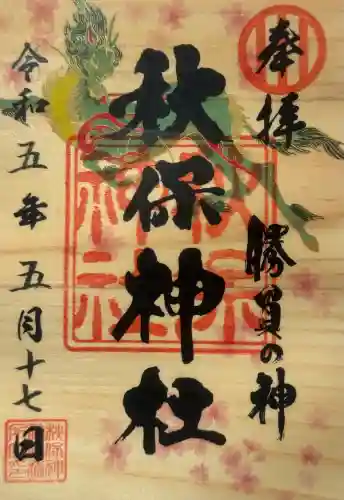 奉拝
勝負の神
秋保神社
令和五年五月十七日
秋保神社